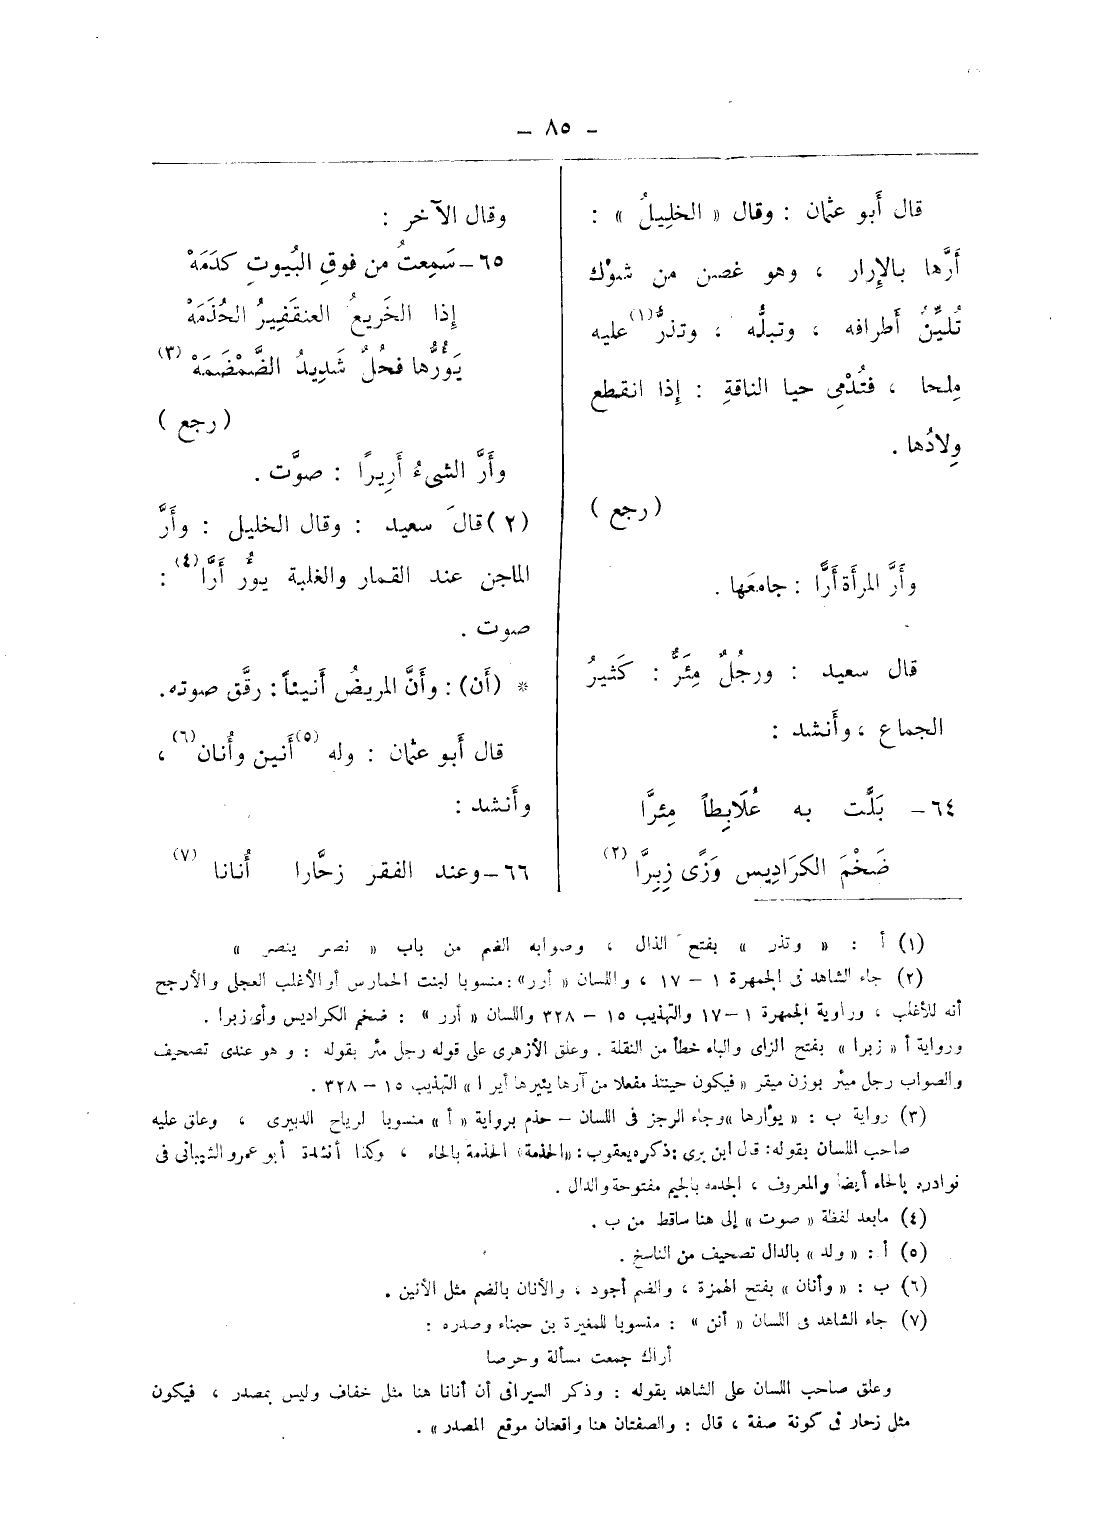 – ٨٥ –
قال أَبو عثمان : وقال « الخليلُ » :
أَرَّها بالإِرار ، وهو غصن من شوْك
تُليِّنُ أَطرافه ، وتبلُّه ، وتذرُّ(١) عليه
مِلحا ، فتُدْمِى حيا الناقةِ : إِذا انقطع
وِلادُها .
( رجع )
وأَرَّ المرأَة أَرًّا : جامعَها .
قال سعيد : ورجُلٌ مِئَرٌّ : كَثيرُ
الجماع ، وأَنشد :
٦٤– بَلَّت به عُلَابِطاً مِئرَّا
ضَخْمَ الكرَادِيس وَزًى زِبِرَّا (٢)
وقال الآخر :
٦٥–سَمِعتُ من فوقِ البُيوتِ كدَمَهْ
إِذا الخَريعُ العنقَفِيرُ الحُذَمَهْ
يَؤُرُّها فحْلٌ شَدِيدُ الضَّمْضَمَهْ (٣)
( رجع )
وأَرَّ الشىءُ أَرِيرًا : صوَّت .
(٢)قال سعيد : وقال الخليل : وأَرَّ
الماجن عند القمار والغلبة يؤرُّ أَرًّا(٤) :
صوت .
* (أَن) : وأَنَّ المريضُ أَنيناً : رقَّق صوته.
قال أَبو عثمان : وله (٥)أَنين وأُنان(٦) ،
وأَنشد :
٦٦–وعند الفقر زحَّارا أُنانا (٧)
(١) أ : « وتذر » بفتح الذال ، وصوابه الضم من باب « نصر ينصر »
(٢) جاء الشاهد فى الجمهرة ١ – ١٧ ، واللسان « أرر» : منسوبا لبنت الحمارس أو الأغلب العجلى والأرجح
أنه للأغلب ، ورواية الجمهرة ١–١٧ والتهذيب ١٥ – ٣٢٨ واللسان « أرر » : ضخم الكراديس وأى زبرا .
ورواية أ « زبرا » بفتح الزاى والباء خطأ من النقلة . وعلق الأزهرى على قوله رجل مئر بقوله : وهو عندى تصحيف
والصواب رجل ميئر بوزن ميقر « فيكون حينئذ مفعلا من آرها يئيرها أيرا » التهذيب ١٥ – ٣٢٨ .
(٣) رواية ب : « يؤارها »وجاء الرجز فى اللسان – حذم برواية « أ » منسوبا لرياح الدبيرى ، وعلق عليه
صاحب اللسان بقوله: قال ابن برى :ذكره يعقوب: «الحذمة» الحذمة بالحاء ، وكذا أنشده أبو عمرو الشيبانى فى
نوادره بالحاء أيضا والمعروف ، الجدمه بالجيم مفتوحة والدال .
(٤) مابعد لفظة « صوت » إلى هنا ساقط من ب .
(٥) أ : « ولد » بالدال تصحيف من الناسخ .
(٦) ب : « وأنان » بفتح الهمزة ، والضم أجود ، والأنان بالضم مثل الأنين .
(٧) جاء الشاهد فى اللسان « أنن » : منسوبا للمغيرة بن حبناء وصدره :
أراك جمعت مسألة وحرصا
وعلق صاحب اللسان على الشاهد بقوله : وذكر السيرافى أن أنانا هنا مثل خفاف وليس بمصدر ، فيكون
مثل زحار فى كونة صفة ، قال : والصفتان هنا واقعتان موقع المصدر » .